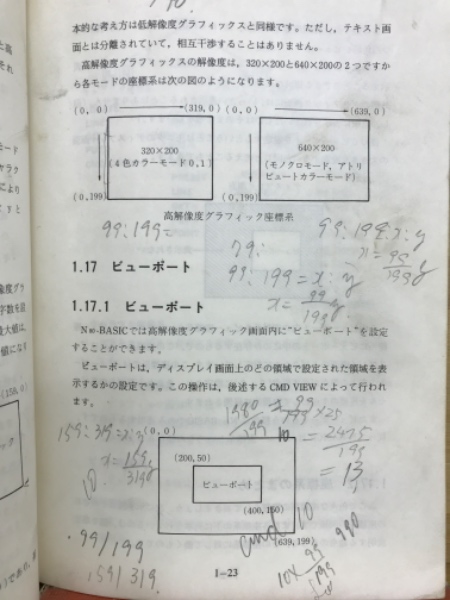 本的な考え方は低解像度グラフィックスと同様です。ただし，テキスト画
面とは分離されていて，相互干渉することはありません。
高解像度グラフィックスの解像度は，320×200と640×200の2つですか
ら各モードの座標系は次の図のようになります。
(0, 0) (319, 0) (0, 0) (639, 0)
320×200
(4色カラーモード0,1)
640×200
(モノクロモード，アトリ
ビュートカラーモード)
(0,199) (0,199)
高解像度グラフィック座標系
99:199=
99:199=x:y
x=99/199y
79:
99:199=x:y
x=99/199y
1.17 ビューポート
1.17.1 ビューポート
N80-BASICでは高解像度グラフィック画面内に"ビューポート"を設定
することができます。
ビューポートは，ディスプレイ画面上のどの領域で設定された領域を表
示するかの設定です。この操作は，後述するCMD VIEWによって行われ
ます。
99/199×25
=2475/199
=13
159:319=x:y
x=159/319
10
(0,0)
(200,50)
ビューポート
(400,150)
(639,199)
10
cmd 10
990
99/199
159/319
10×99/199
1−23